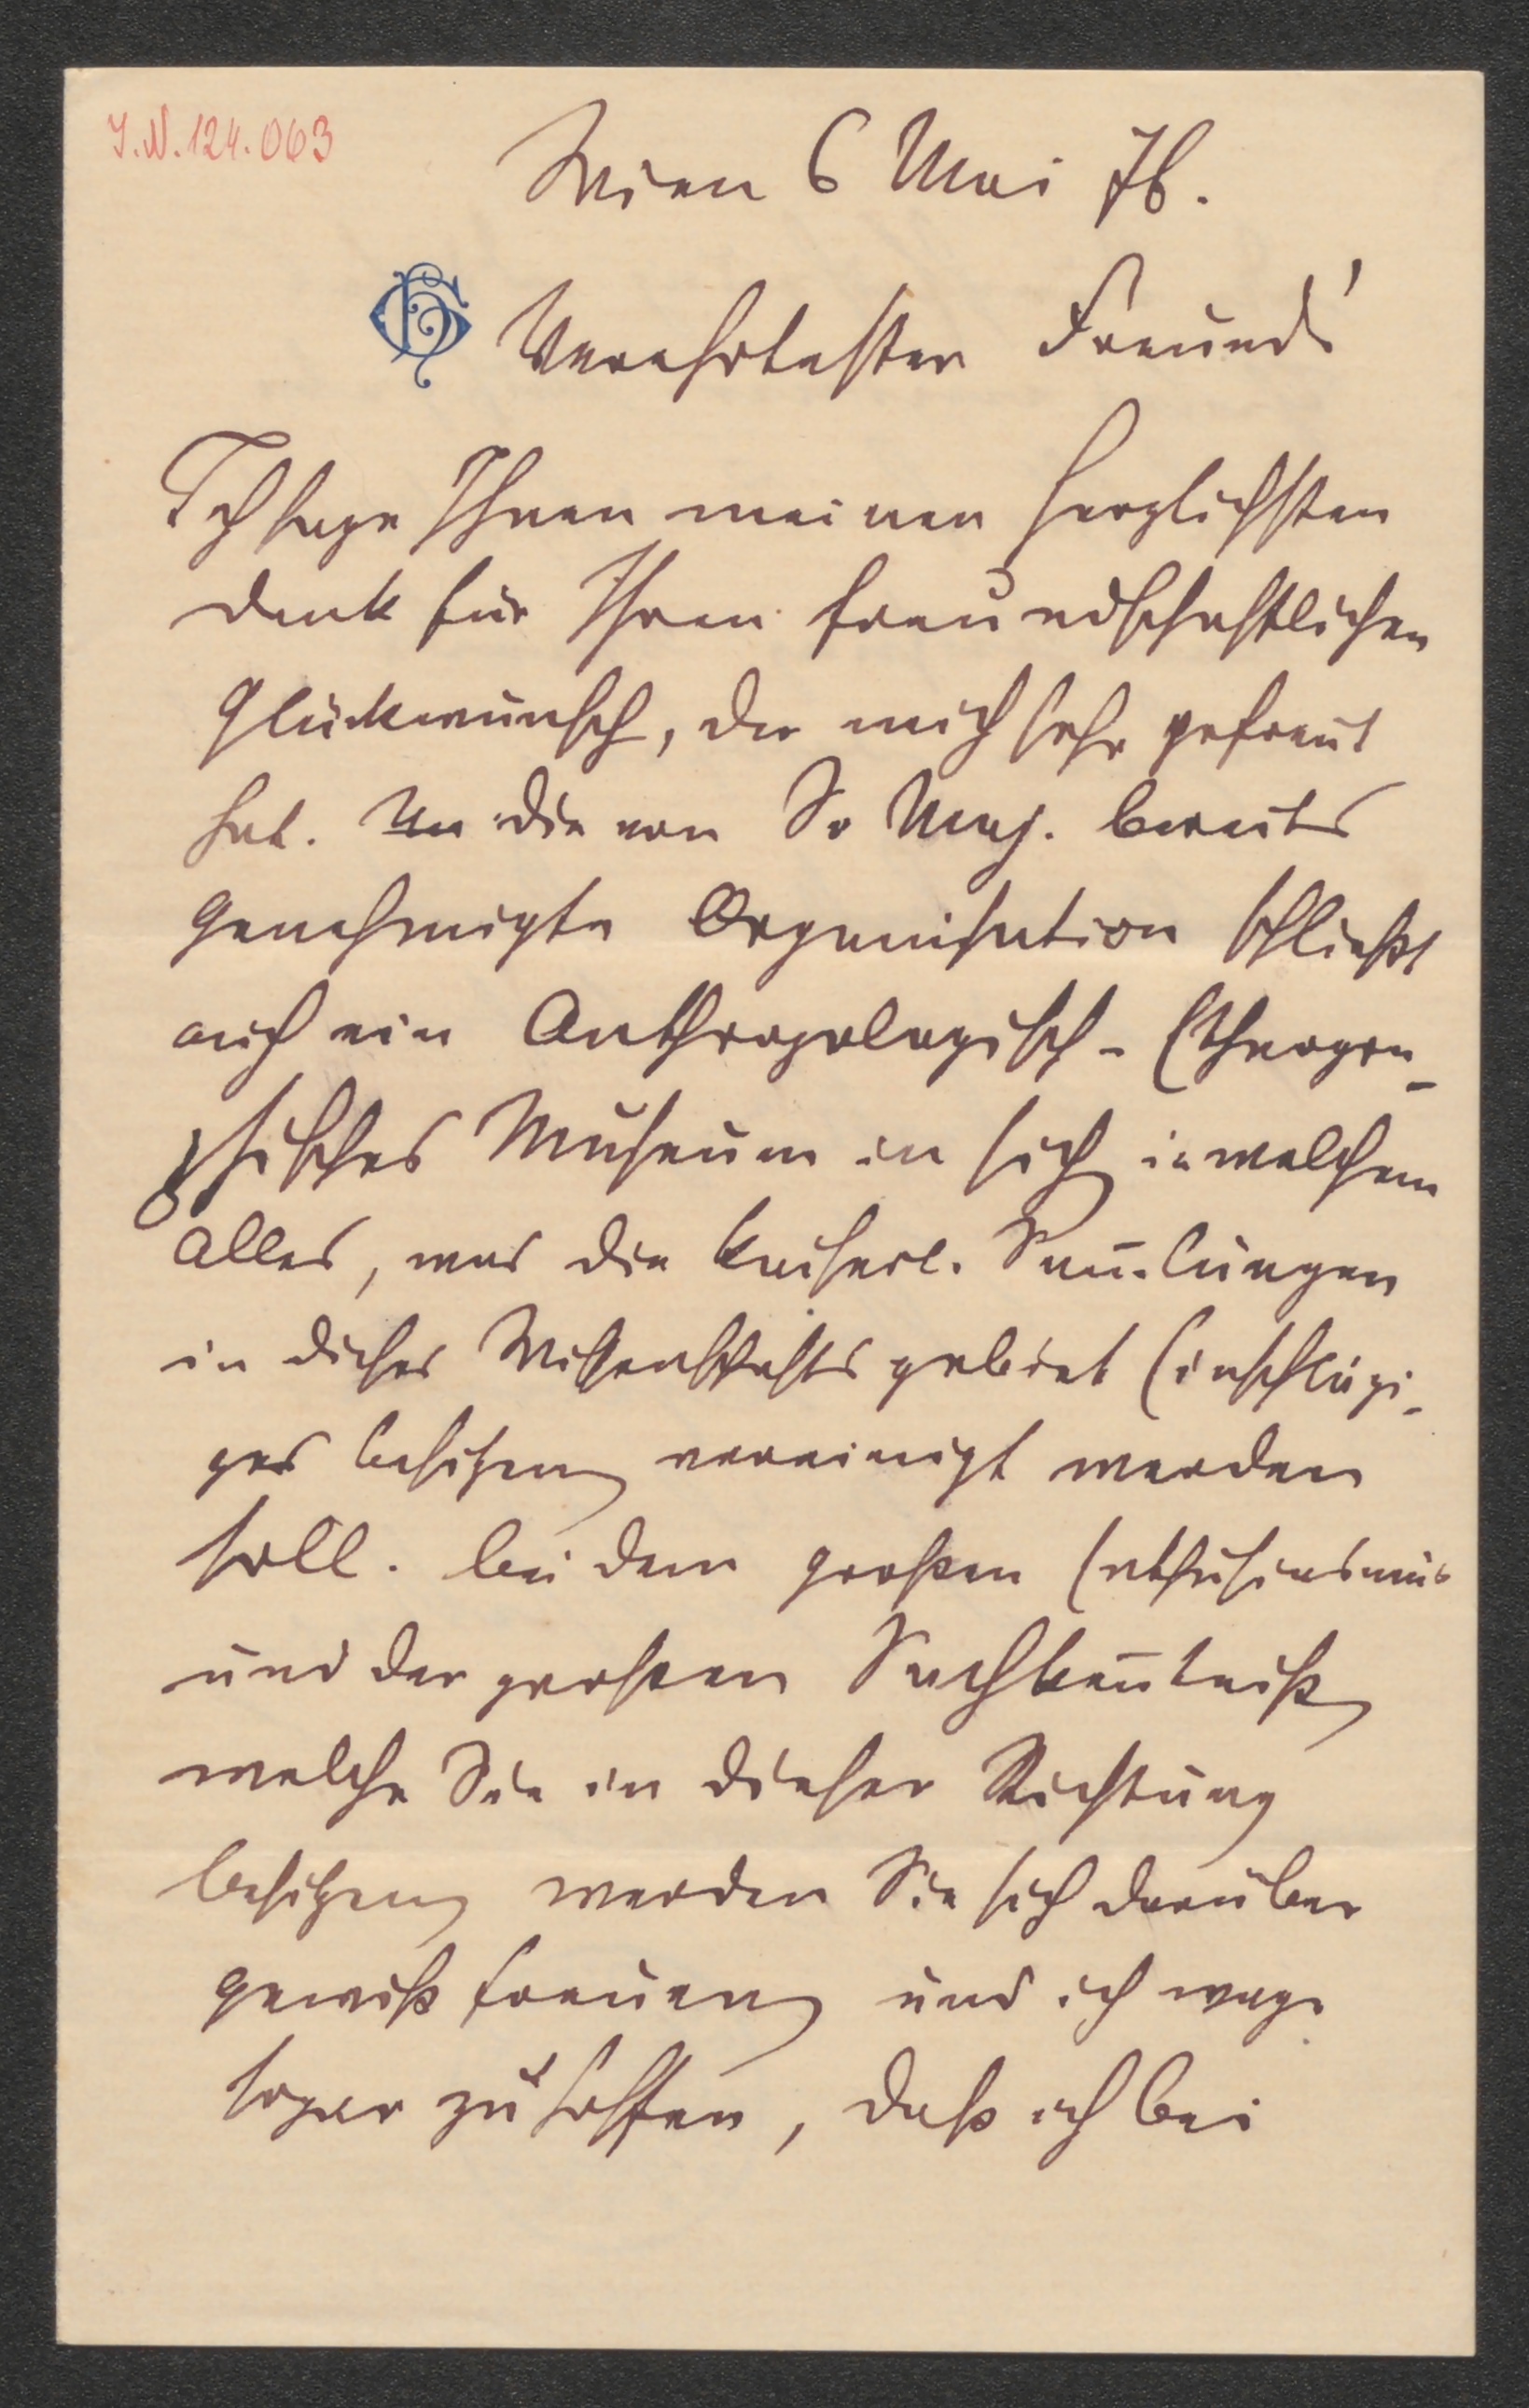 I.N. 124.063
Wien 6 Mai 76.
Verehrtester Freund!
Ich sage Ihnen meinen herzlichsten
Dank für Ihren freundschaftlichen
Glückwunsch, der mich sehr gefreut
hat. Die von Sr Maj. bereits
genehmigte Organisation schließt
auch ein Anthropologisch-Ethnogra-
phisches Museum in sich in welchem
Alles, was die kaiserl. Sam̄lungen
in dieses Wissenschaftsgebiet Einschlägi-
ges besitzen vereinigt werden
soll. Bei dem großen Enthusiasmus
und der großen Sachken̄tniß
welche Sie in dieser Richtung
besitzen werden Sie sich darüber
gewiß freuen und ich wage
sogar zu hoffen, daß ich bei